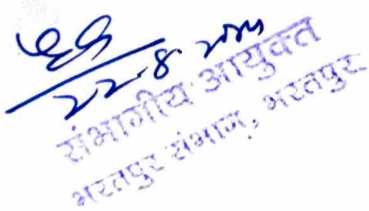 22.8
संभागीय आयुक्त
भरतपुर संभाग, भरतपुर